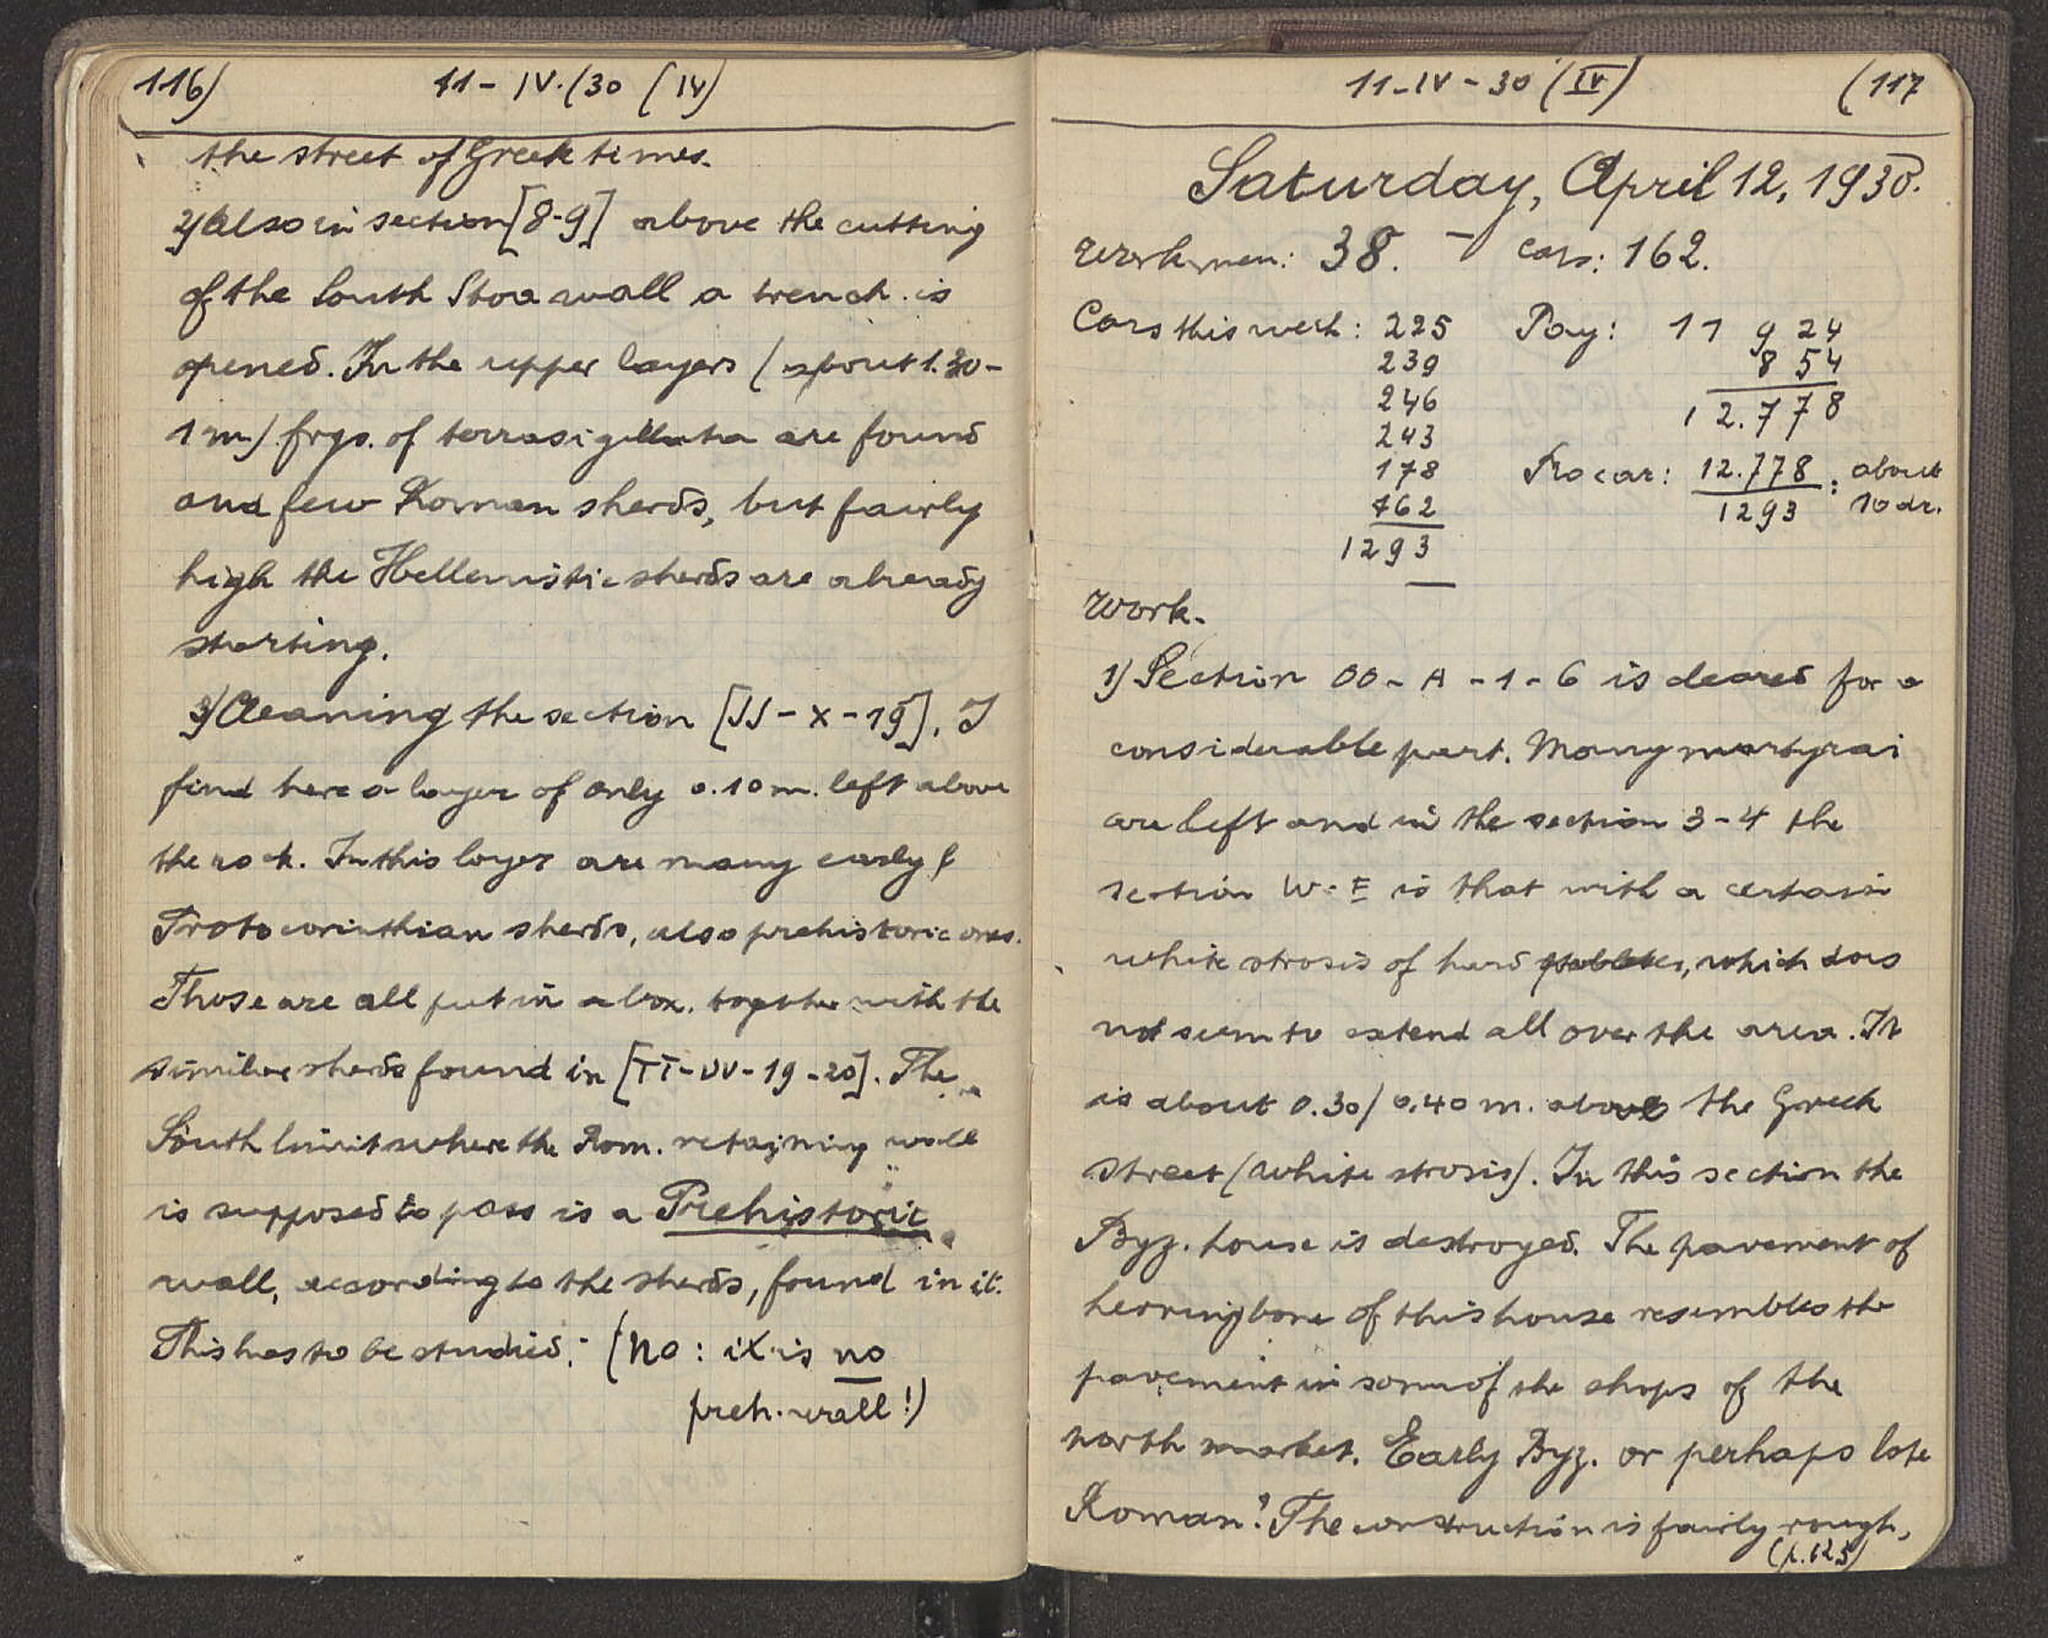 116) 11-IV-/30 (IV)
the street of Greek times.
2) Also in section [8-9] above the cutting
of the South Stoa wall a trench is
opened. In the upper layers (about 1.30-
1 m) frgs. of terrasigillata are found
and few Roman sherds, but fairly
high the Hellenistic sherds are already
starting.
3) Cleaning the section [JJ-X-19], I
find here a layer of only 0.10 m. left above
the rock. In this layer are many early
Protocorinthian sherds, also prehistoric ones.
Those are all put in a box, together with the
similar sherds found in [TT-UU-19-20]. The
South limit where the Rom. retaining wall
is supposed to pass is a Prehistoric
wall, according to the sherds, found in it.
This has to be studied.- (No: it is no
preh. wall!)
11-IV-30 (IV) (117
Saturday, April 12, 1930.
Workmen: 38. - Cars: 162.
Cars this week: 225 Pay: 11 924
239 854
246 12.778
243
178 Pro car: 12.778 : about
162 1293 10 dr.
1293
Work.
1) Section OO-A-1-6 is cleared for a
considerable part. Many martyrai
are left and in the section 3-4 the
section W-E is that with a certain
white strosis of hard pebbles, which does
not seem to extend all over the area. It
is about 0.30/0.40 m. above the Greek
street (white strosis). In this section the
Byz. house is destroyed. The pavement of
herringbone of this house resembles the
pavement in some of the shops of the
north market. Early Byz. or perhaps late
Roman? The construction is fairly rough,
(p.125)